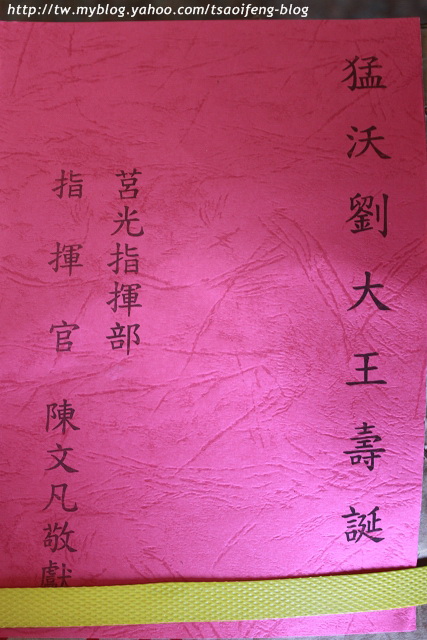 http://tw.myblog.yahoo.com/tsaoifeng-blog
猛沃劉大王壽誕
莒光指揮部
指揮官 陳文凡敬獻